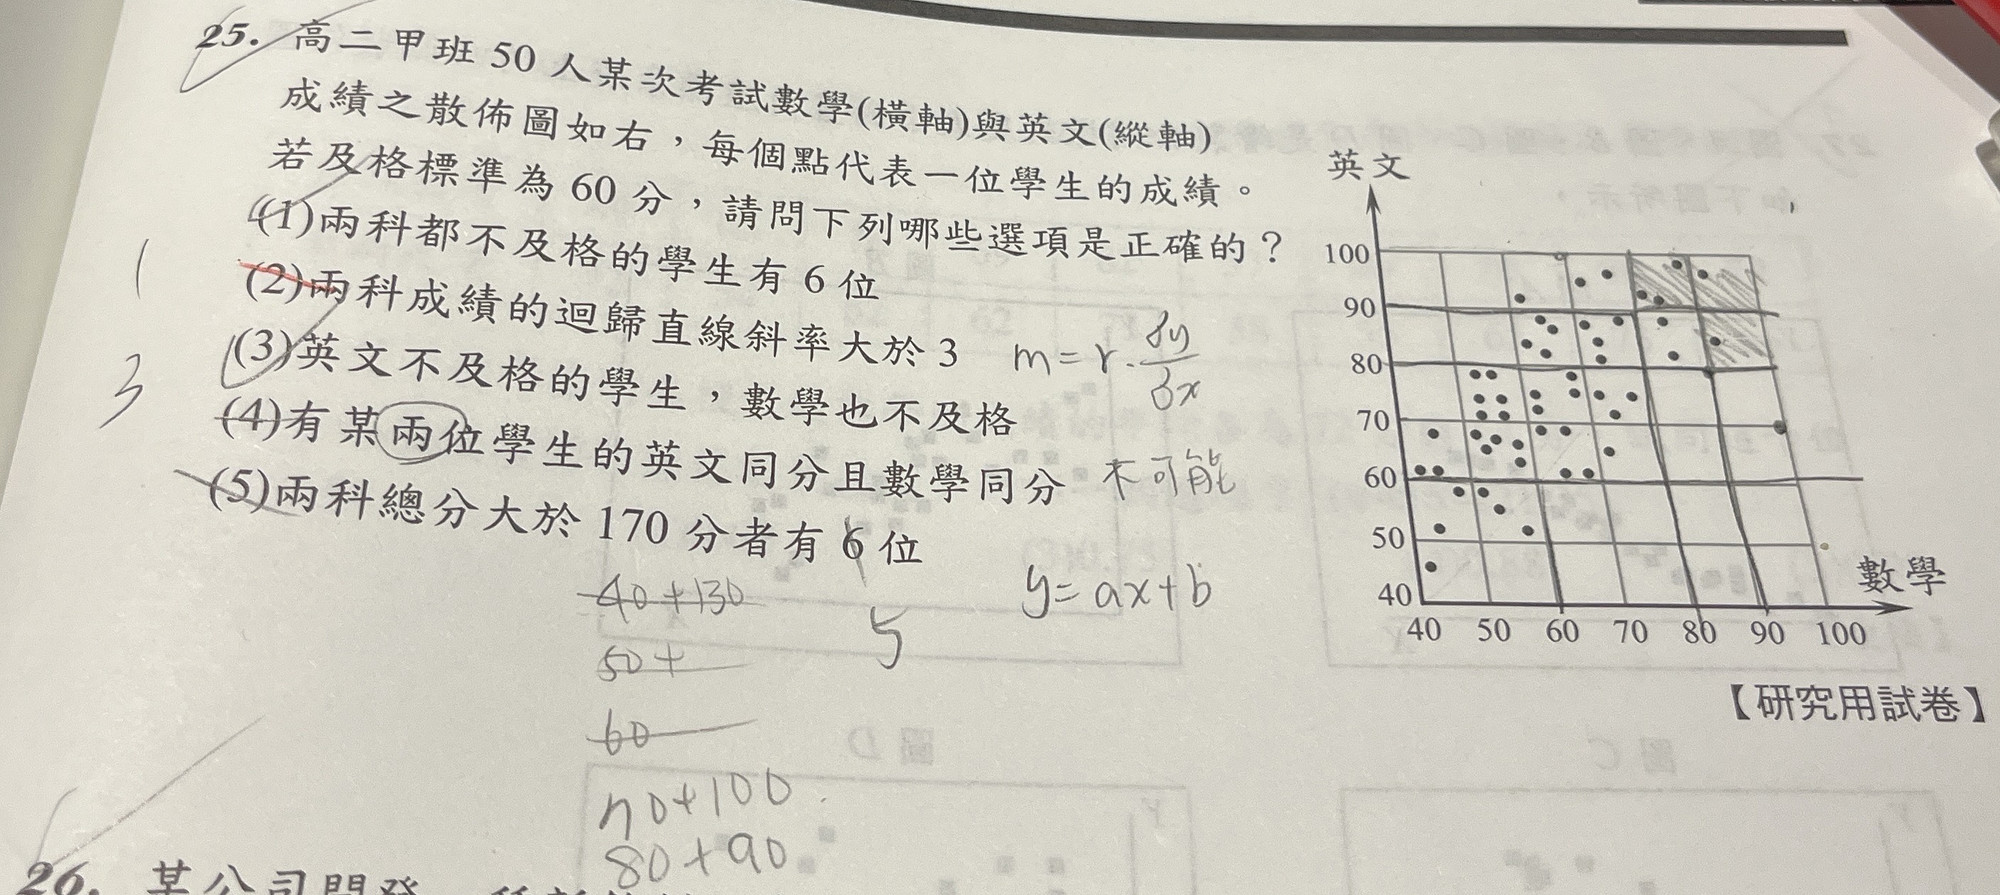 25. 高二甲班 50 人某次考試數學(橫軸)與英文(縱軸)
成績之散佈圖如右，每個點代表一位學生的成績。
若及格標準為 60 分，請問下列哪些選項是正確的？
(1)兩科都不及格的學生有 6 位
(2)兩科成績的迴歸直線斜率大於 3
(3)英文不及格的學生，數學也不及格
(4)有某兩位學生的英文同分且數學同分
(5)兩科總分大於 170 分者有 6 位
1
3
m = r ·
不可能
y = ax + b
5
40 + 130
50 +
60
70 + 100
80 + 90
英文
100
90
80
70
60
50
40
40 50 60 70 80 90 100
數學
【研究用試卷】
圖 D
圖 C
26. 某公司開發